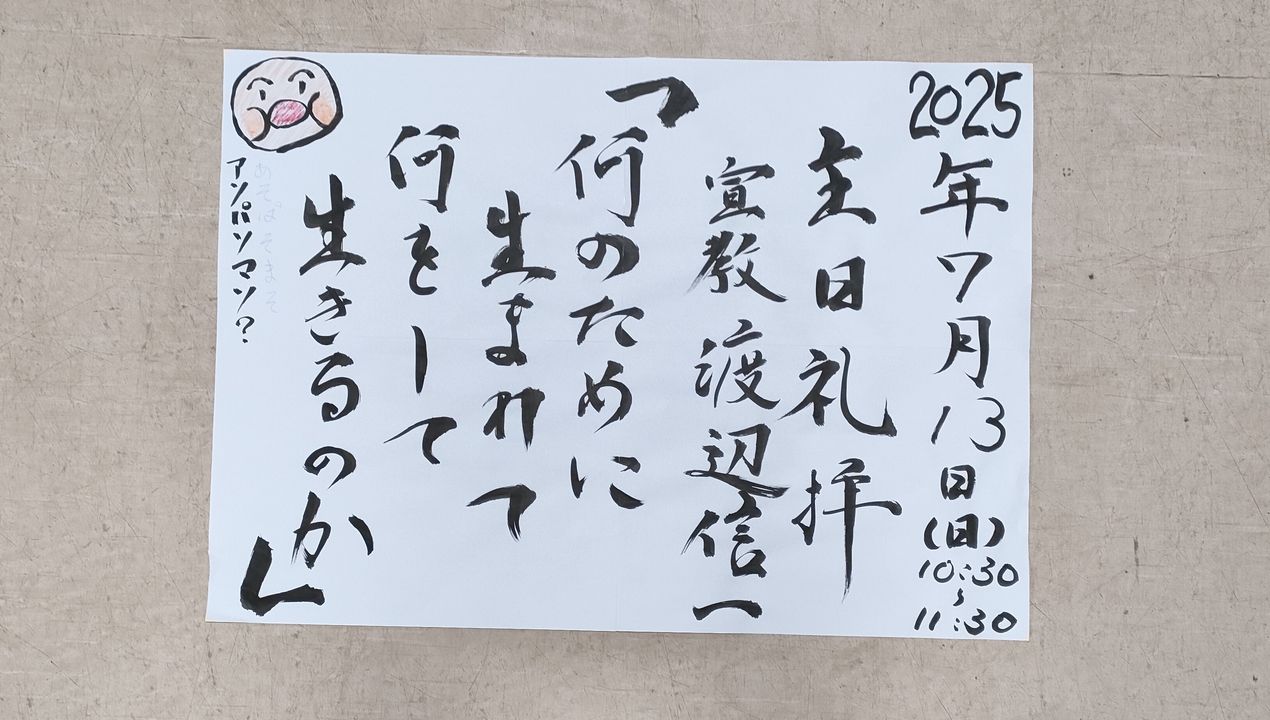 2025年7月13日(日)10:30～11:30
主日礼拝
宣教 渡辺信一
「何のために
生まれて
何をして
生きるのか」
アンパンマン？